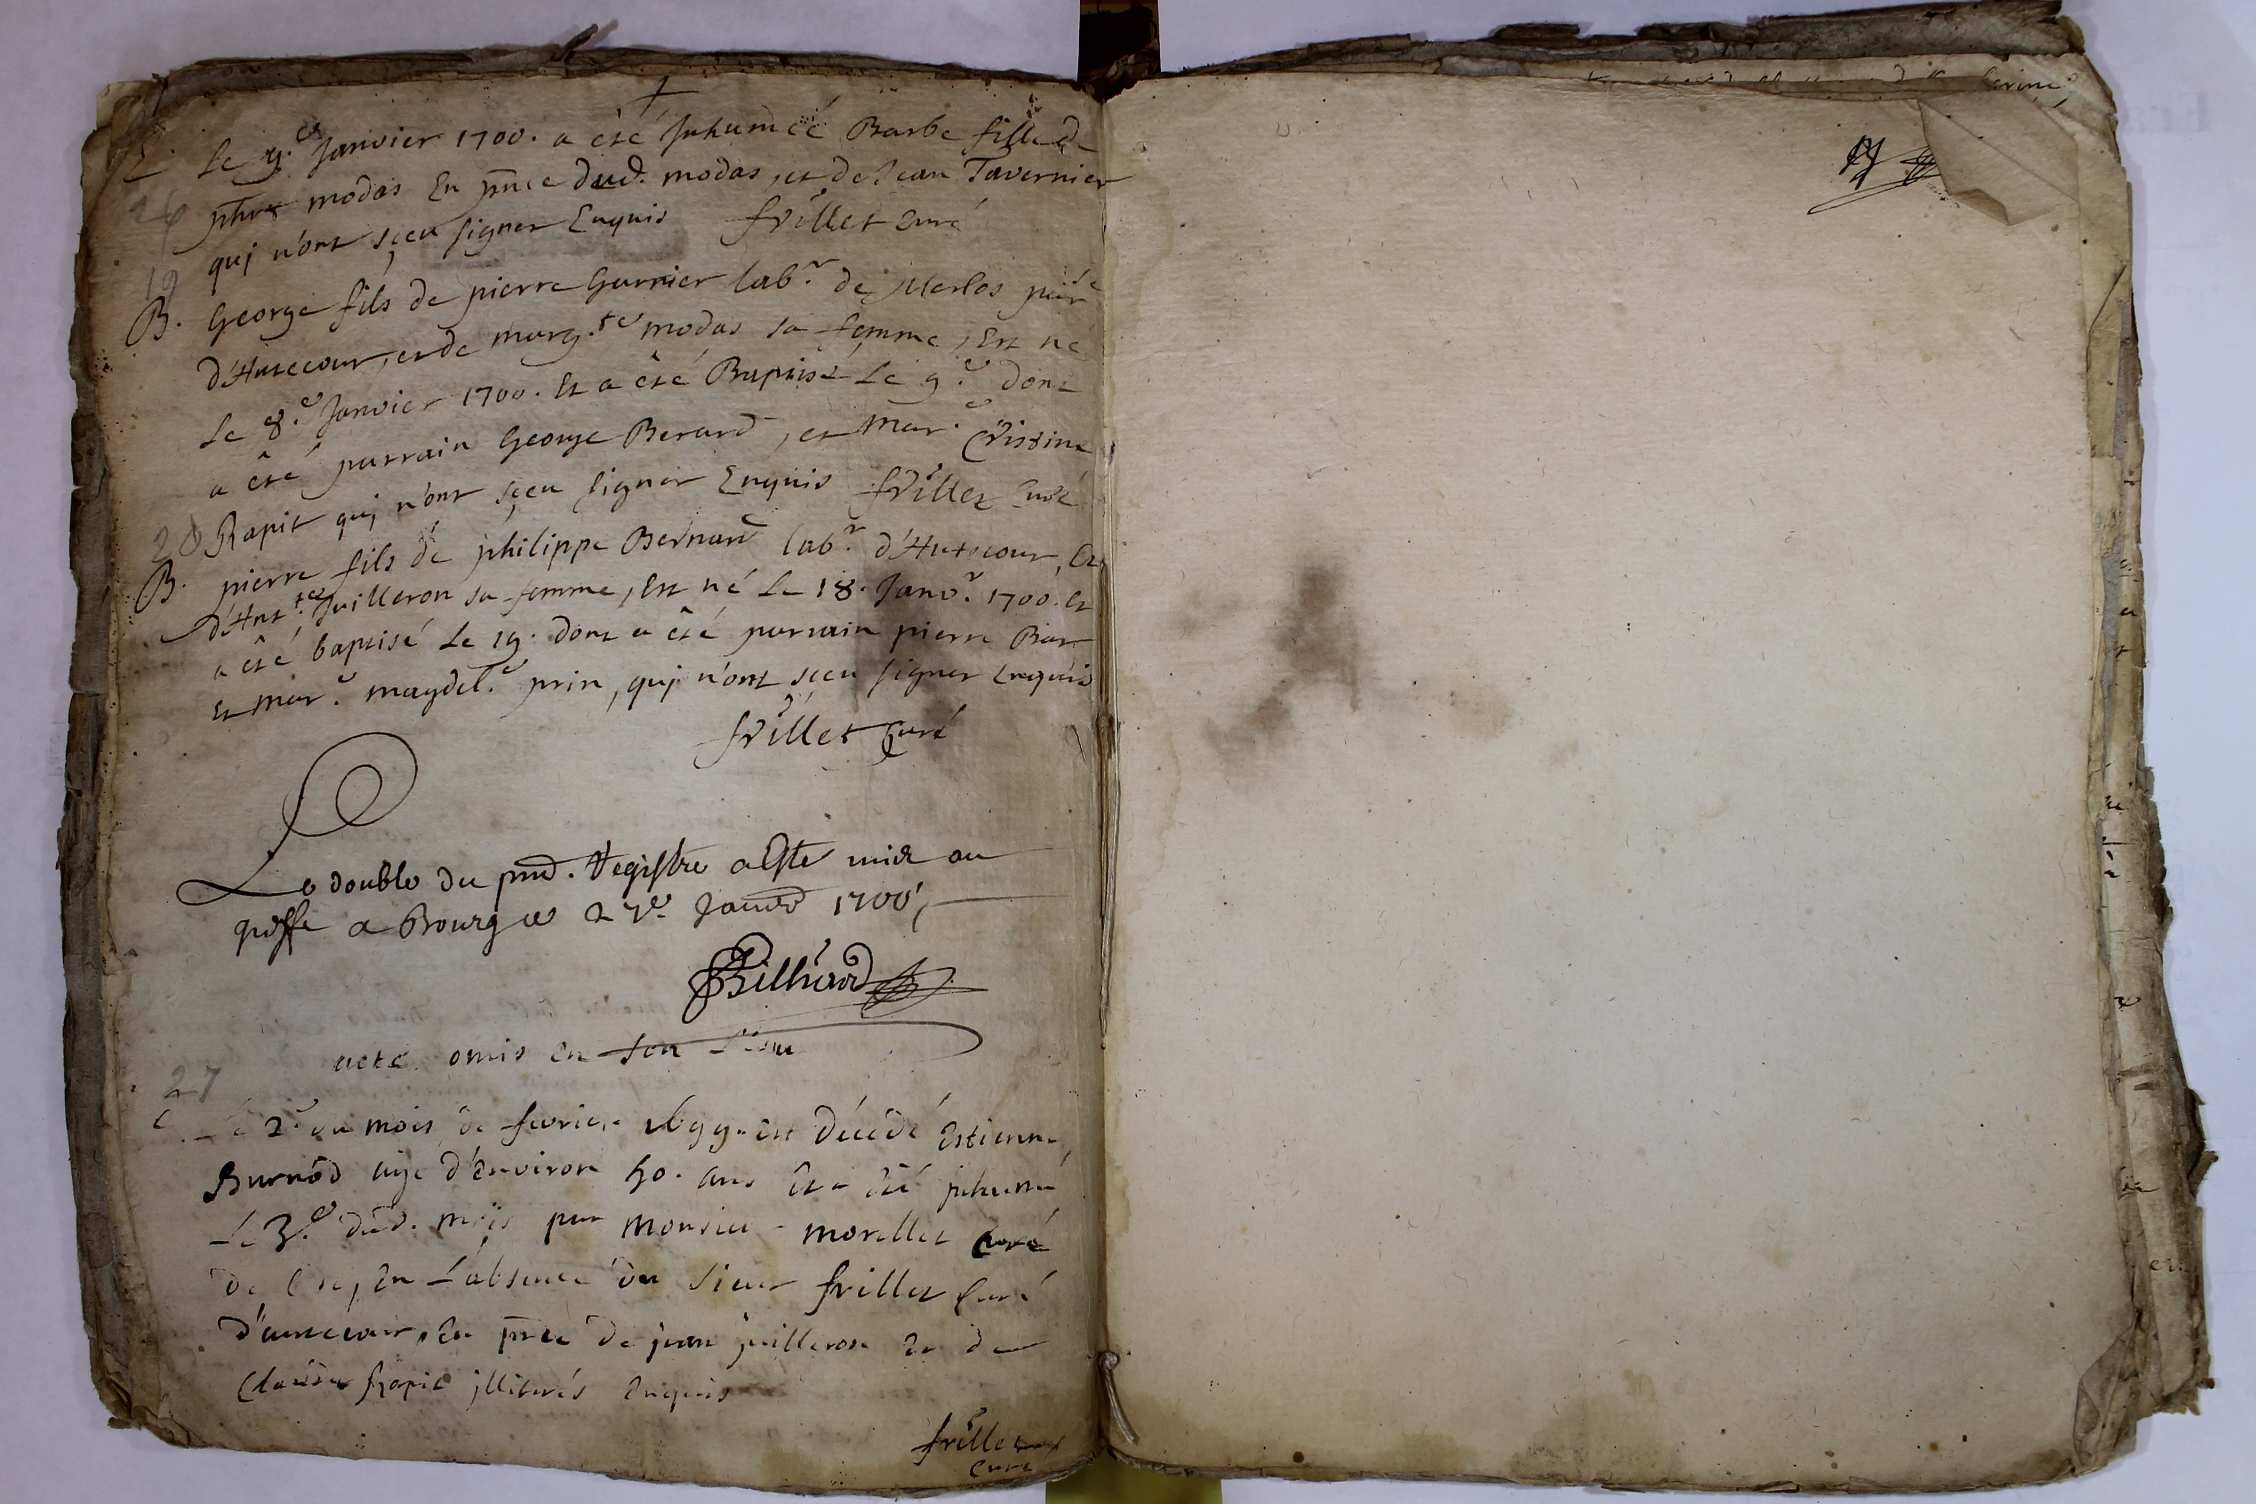 E. Le 9.e Janvier 1700. a été Inhumée Barbe fille de
26 modas En pnce dud. modas, et de Jean Tavernier
quj n'ont sçeu signer Enquis frillet curé
19
B. George fils de pierre Garnier lab.r de Merlos parr.e
d'Hutecour, et de marg.te modas sa femme, Est né
Le 8.e Janvier 1700. Et a été Baptisé Le 9.e dont
a été parrain George Berard, et Mar.e Cristine
Rapit quj n'ont sçeu signer Enquis frillet Curé
20
B. pierre fils de philippe Bernard lab.r d'Hutecour, Et
d'Ant.te Juilleron sa femme, Est né Le 18. Janv.r 1700. Et
a été baptisé Le 19. dont a été parrain pierre Bar
Et mar.e magdel.e prin, quj n'ont sçeu signer Enquis
frillet Curé
Le double du pnd. Registre a Esté mis au
greffe a Bourg ce 27e Janvier 1700
Billiard
acte omis en son lieu
27
E. Le 2.e du mois de fevrier 1699. est décédé Estienne
Burnod agé d'environ 50. ans Et a été jnhumé
Le 3.e dud. mois par Monsieur morellet curé
de en L'absence du sieur frillet Curé
d'autecour, En pnce de jean juilleron Et de
Claude Rapit jlliterés Enquis
frillet
curé